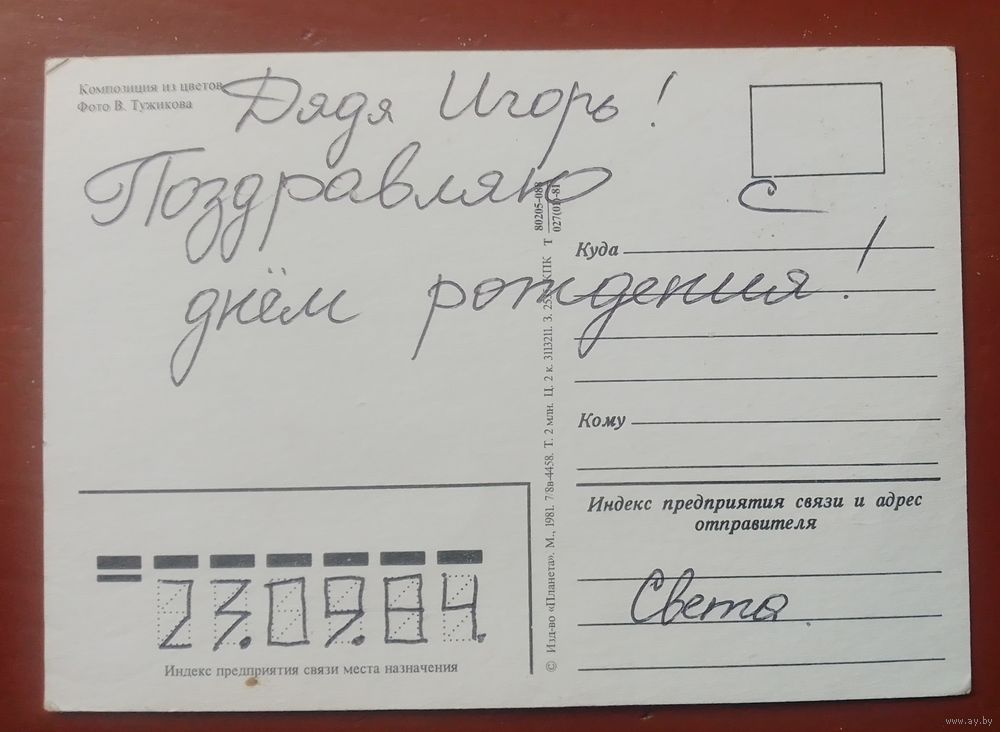 Композиция из цветов
Фото В. Тужикова
Дядя Игорь!
Поздравляю с
днём рождения!
Куда
Кому
Индекс предприятия связи и адрес
отправителя
Света.
23.09.84.
Индекс предприятия связи места назначения
© Изд-во «Планета». М., 1981. 7/8в-4458. Т. 2 млн. Ц. 2 к. 3113211. З. КПК Т
80205-088
027(01)-81
www.ay.by